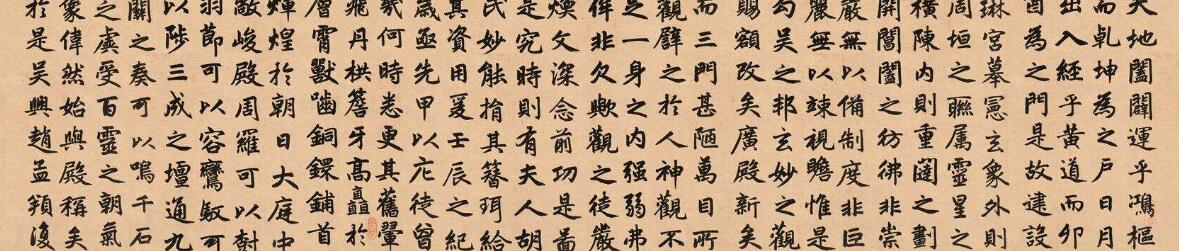 天地闔闢運乎鴻樞
而乹坤為之戶日月
出入經乎黃道而卯
酉為之門是故建設
琳宮摹憲玄象外則
周垣之聮属靈星之
橫陳內則重闥之劃
開閶闔之彷彿非崇
嚴無以備制度非巨
麗無以竦視瞻惟是
勾吳之邦玄妙之觀
賜額改矣廣殿新矣
而三門甚陋萬目所
觀譬之於人神觀不
足一身之內强弱弗
侔非欠歟觀之徒嚴
煥文深念前功是啚
是究時則有夫人胡
氏妙能捐其簪珥給
其資用爰壬辰之紀
歲亟先甲以庀徒曾
幾何時悉更其舊翬
飛丹栱簷牙髙矗於
層霄獸嚙銅鐶鋪首
煇煌於朝日大庭中
敞峻殿周羅可以樹
羽節可以容鸞馭可
以陟三成之壇通九
關之奏可以鳴千石
之虡受百靈之朝氣
象偉然始與殿稱矣
於是吳興趙孟頫復